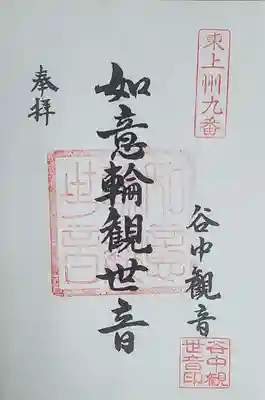 東上州九番
奉拝
如意輪觀世音
谷中観音
谷中観
世音印